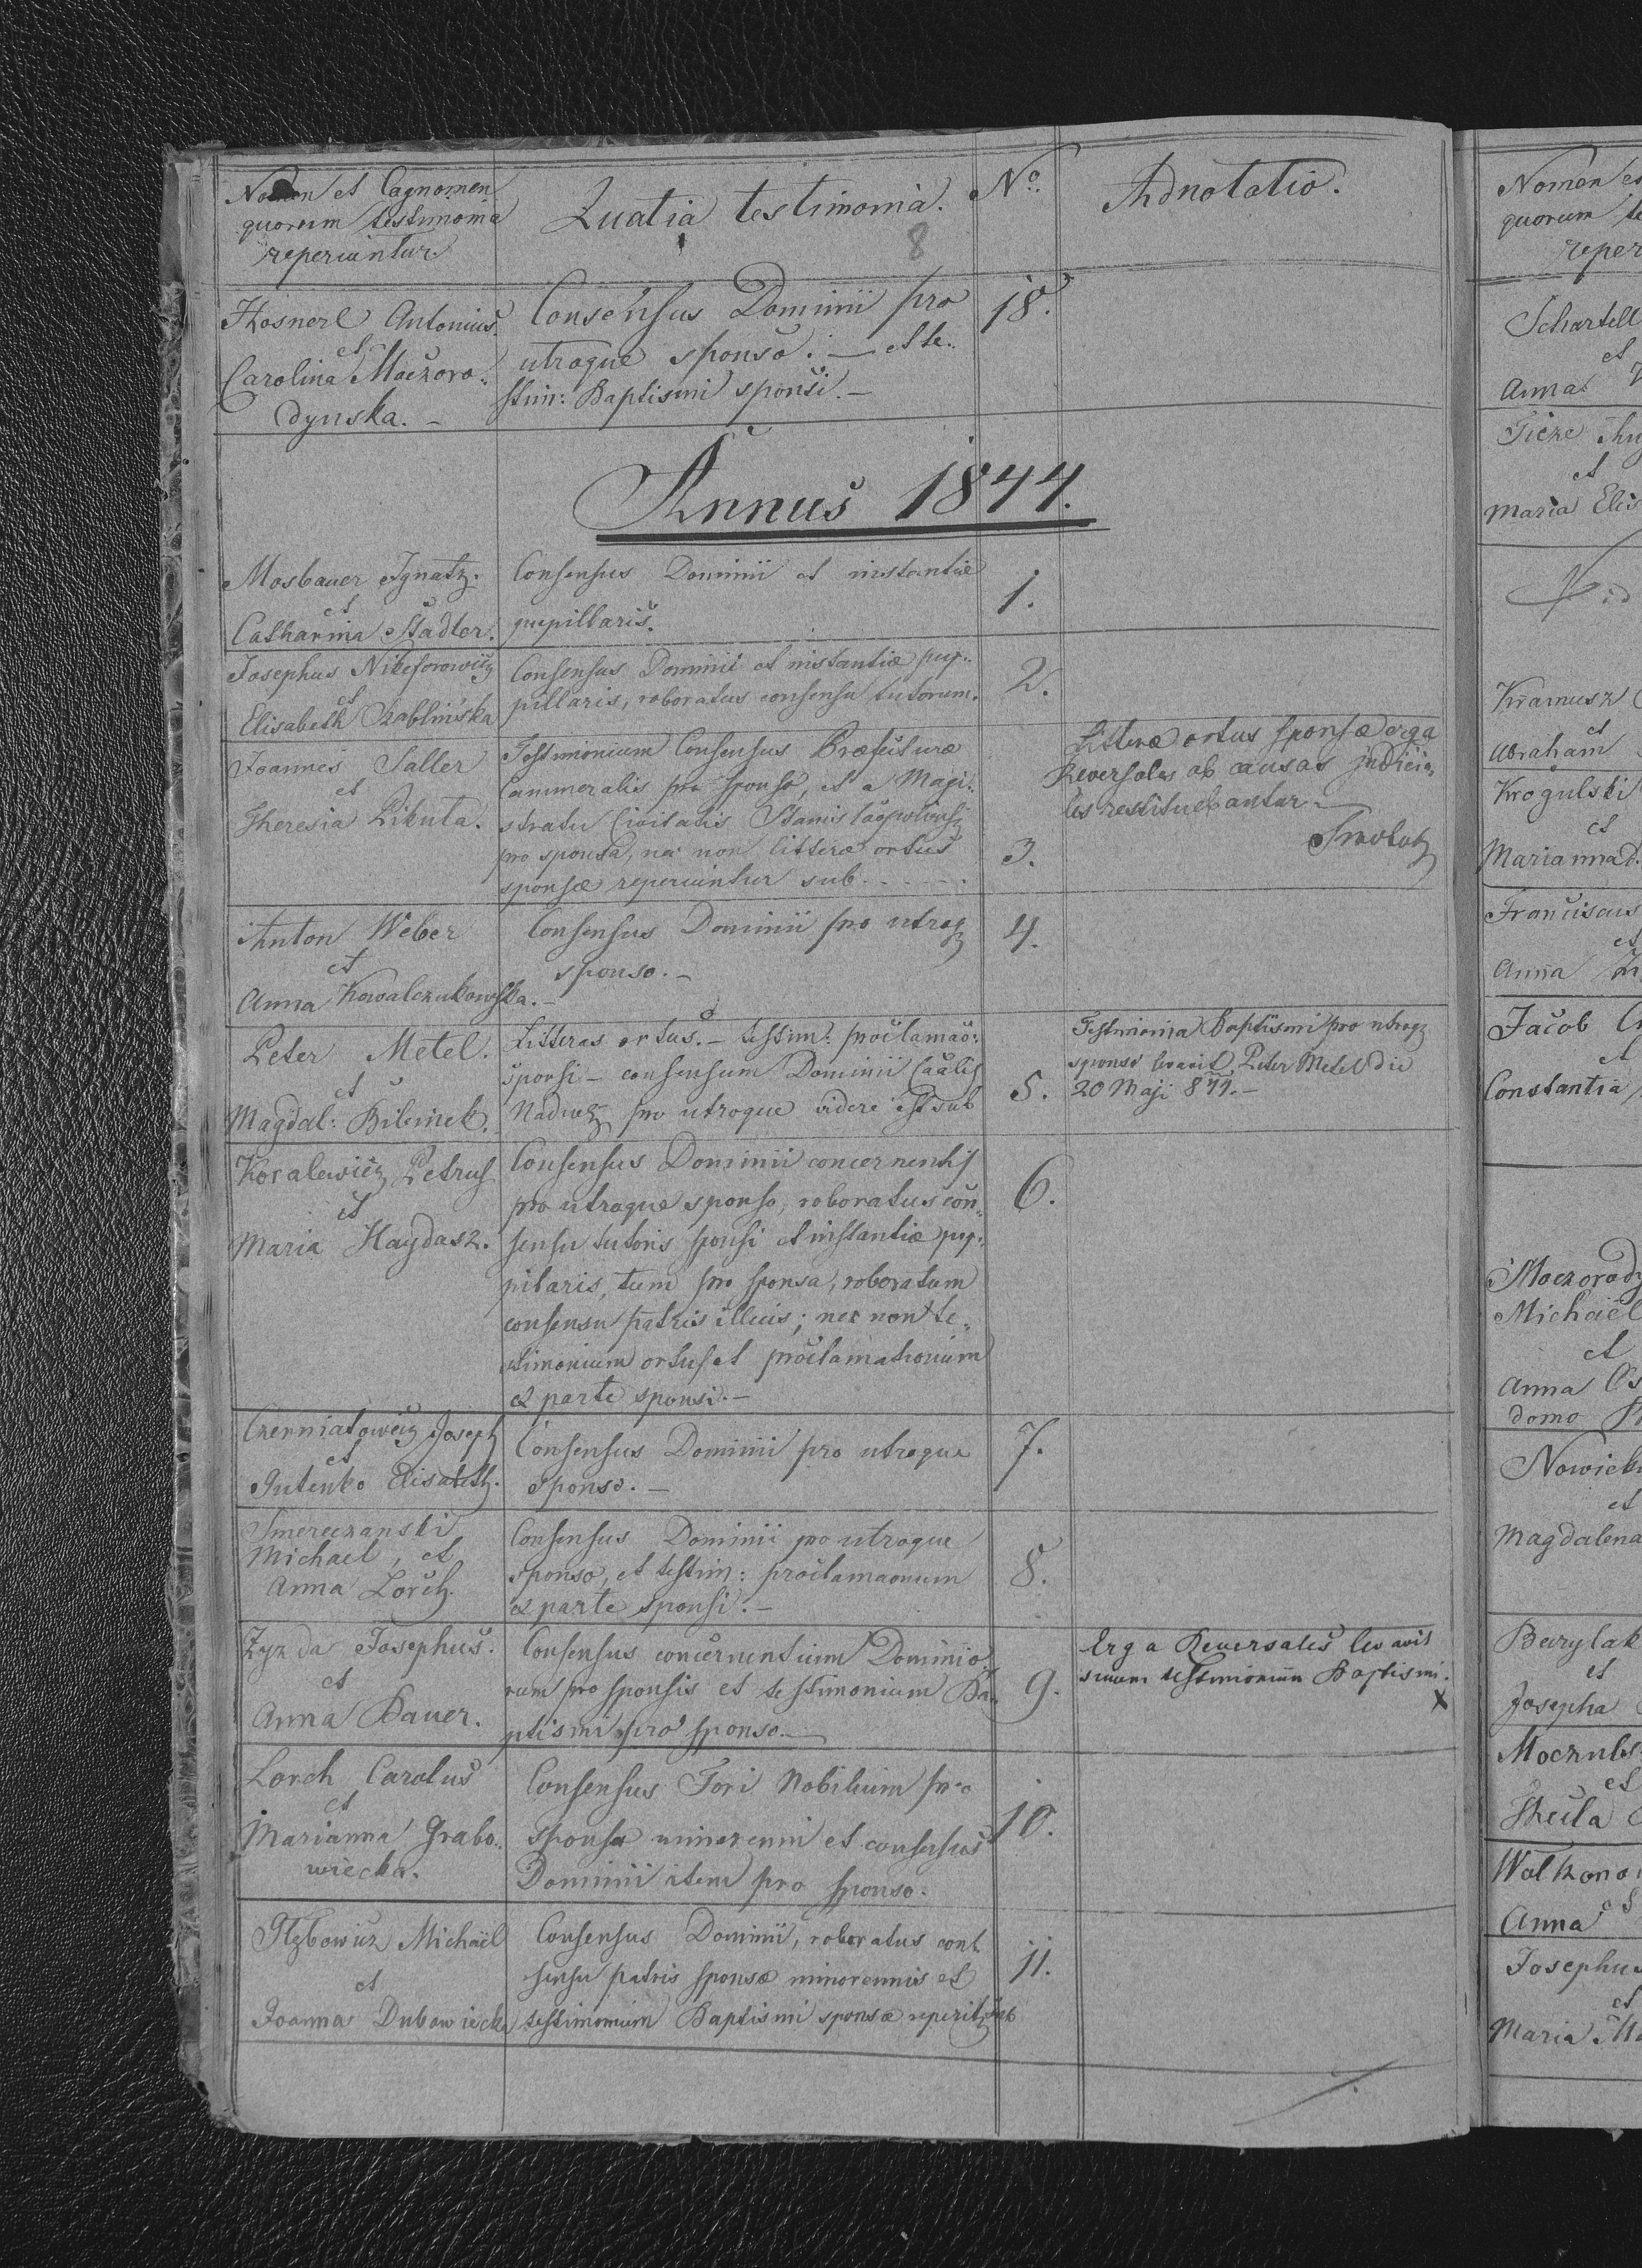 Nomen et Cagnomen
quorum testimonia
reperiuntur.
Qualia testimonia.
8
No.
Adnotatio.
Antonius
et
Carolina Moczoro-
dynska. -
Consensus Dominii pro
utroque sponso. — et te-
stim: Baptismi sponsi. -
18.
Annus 1844.
Mosbauer Ignatz.
et
Catharina Stadler.
Consensus Dominii et instantiæ
pupillaris.
1.
Josephus Nikeforowicz
et
Elisabeth Szablinska
Consensus Dominii et instantiæ pup-
pillaris, roboratus consensu tutorum.
2.
Joannes Saller
et
Theresia Pikuta.
Testimonium Consensus Præfecturæ
Cammeralis pro sponso, et a Magi-
stratu Civitatis Stanislaopoliensi
pro sponsa, nec non litteræ ortus
sponsæ reperiuntur sub - - - -
3.
Litteræ ortus sponsæ erga
Reversales ob causas judicia-
les restituebantur -
Anton Weber
et
Anna Kowalczukowska. -
Consensus Dominii pro utroq
sponso. -
4.
Peter Metel.
et
Magdal: Bilinek.
Litteras ortus. - testim: proclamao:
sponsi - consensum Dominii Caalis
pro utroque videre est sub
5.
Testimonia Baptismi pro utroq
sponso levavit Peter Metel die
20 Maji 844. -
Kovalewicz Petrus
et
Maria Haydasz.
Consensus Dominii concernentis
pro utroque sponso, roboratus con-
sensu tutoris sponsi et instantiæ pup-
pilaris, tum pro sponsa, roboratum
consensu patris illius; nec non te-
stimonium ortus et proclamationum
ex parte sponsi. -
6.
Czerniatowicz Joseph
et
Gutenko Elisabeth.
Consensus Dominii pro utroque
sponso. -
7.
Smereczanski
Michael, et
Anna Lorch.
Consensus Dominii pro utroque
sponso, et testim: proclamaonum
ex parte sponsi. -
8.
Zyzda Josephus.
et
Anna Bauer.
Consensus concernentium Dominio
rum pro sponsis et testimonium Ba-
ptismi pro sponso. -
9.
Erga Reversales levavit
suum testimonium Baptismi.
x
Lorch Carolus
et
Marianna Grabo-
wiecka.
Consensus Fori Nobilium pro
sponsa minorenni et consensus
Dominii item pro sponso.
10.
Michaël
et
Joanna Dubowiecka
Consensus Dominii, roboratus con-
sensu patris sponsæ minorennis et
testimonium Baptismi sponsæ reperitur sub
11.
Nomen et
quorum te
reper
Schartell
et
Anna
et
Maria Elis
et
Abraham
Krogulski
et
Marianna
Franciscus
et
Anna
Jacob
et
Constantia
Moczorody
Michaël
et
Anna
domo
Nowick
et
Magdalena
Burylak
et
Josepha
et
Anna
Josephus
et
Maria